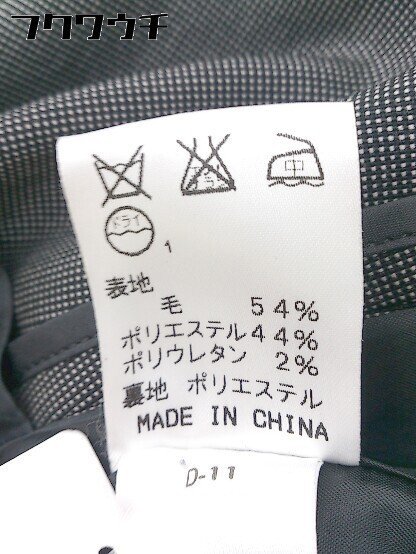 フクワウチ
エンソサラシ
中
ドライ
1
表地
毛 54%
ポリエステル44%
ポリウレタン 2%
裏地 ポリエステル
MADE IN CHINA
D-11